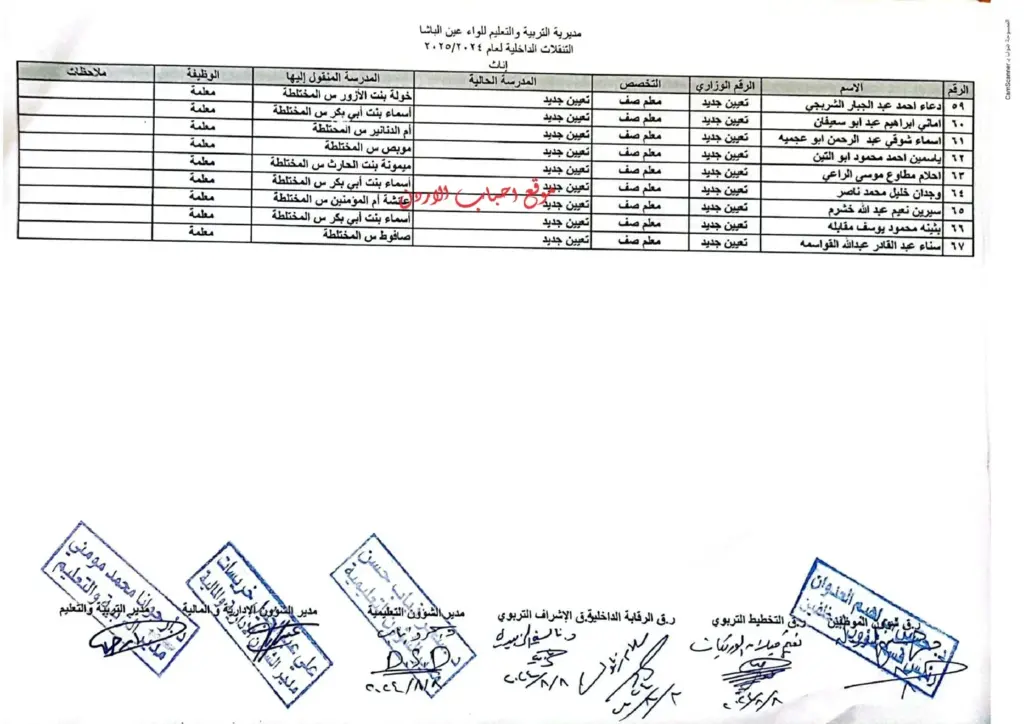 الممسوحة ضوئيا بـ CamScanner
مديرية التربية والتعليم للواء عين الباشا
التنقلات الداخلية لعام ٢٠٢٥/٢٠٢٤
إناث
الرقم الاسم الرقم الوزاري التخصص المدرسة الحالية المدرسة المنقول إليها الوظيفة ملاحظات
٥٩ دعاء احمد عبد الجبار الشربجي تعيين جديد معلم صف تعيين جديد خولة بنت الأزور س المختلطة معلمة
٦٠ اماني ابراهيم عبد ابو سعيفان تعيين جديد معلم صف تعيين جديد أسماء بنت أبي بكر س المختلطة معلمة
٦١ اسماء شوقي عبد الرحمن ابو عجميه تعيين جديد معلم صف تعيين جديد أم الدنانير س المختلطة معلمة
٦٢ ياسمين احمد محمود ابو التين تعيين جديد معلم صف تعيين جديد موبص س المختلطة معلمة
٦٣ احلام مطاوع موسي الراعي تعيين جديد معلم صف تعيين جديد ميمونة بنت الحارث س المختلطة معلمة
٦٤ وجدان خليل محمد ناصر تعيين جديد معلم صف تعيين جديد أسماء بنت أبي بكر س المختلطة معلمة
٦٥ سيرين نعيم عبد الله خشرم تعيين جديد معلم صف تعيين جديد عائشة أم المؤمنين س المختلطة معلمة
٦٦ بثينه محمود يوسف مقابله تعيين جديد معلم صف تعيين جديد أسماء بنت أبي بكر س المختلطة معلمة
٦٧ سناء عبد القادر عبدالله القواسمه تعيين جديد معلم صف تعيين جديد صافوط س المختلطة معلمة
موقع احباب الاردن
ر.ق شؤون الموظفين ر.ق التخطيط التربوي ر.ق الرقابة الداخلية ر.ق الإشراف التربوي مدير الشؤون التعليمية مدير الشؤون الإدارية و المالية مدير التربية والتعليم
٢٠٢٤/٨/٨